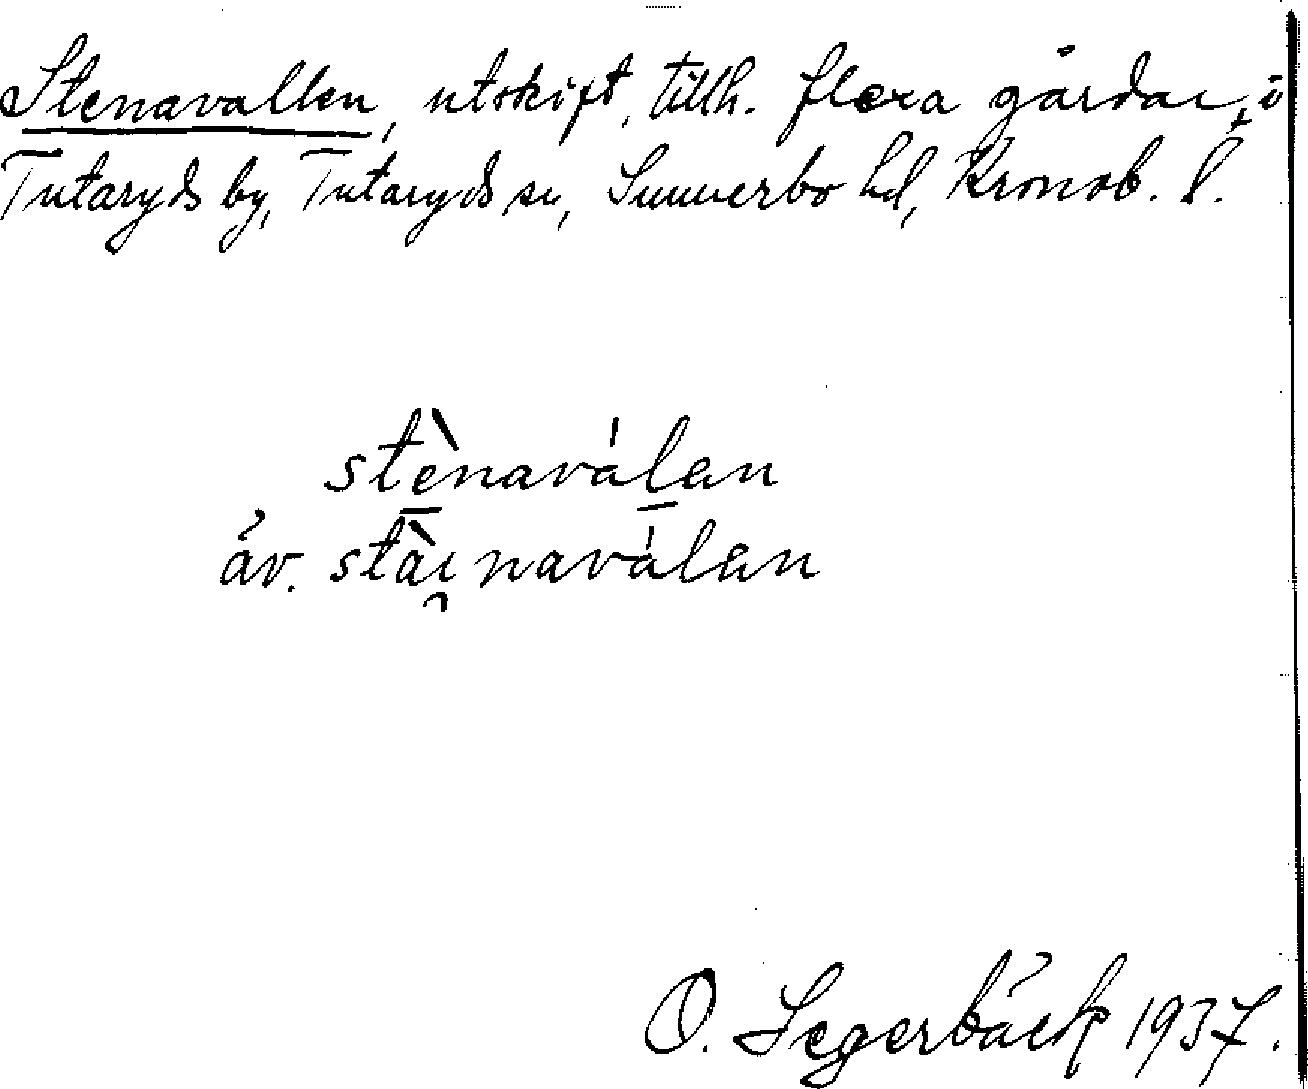 Stenavallen, utskift, tillh. flera gårdar, i
Tutaryds by, Tutaryds sn, Sunnerbo hd, Kronob. l.
stènaválen
äv. stài̯naválen
O. Segerbäck 1937.